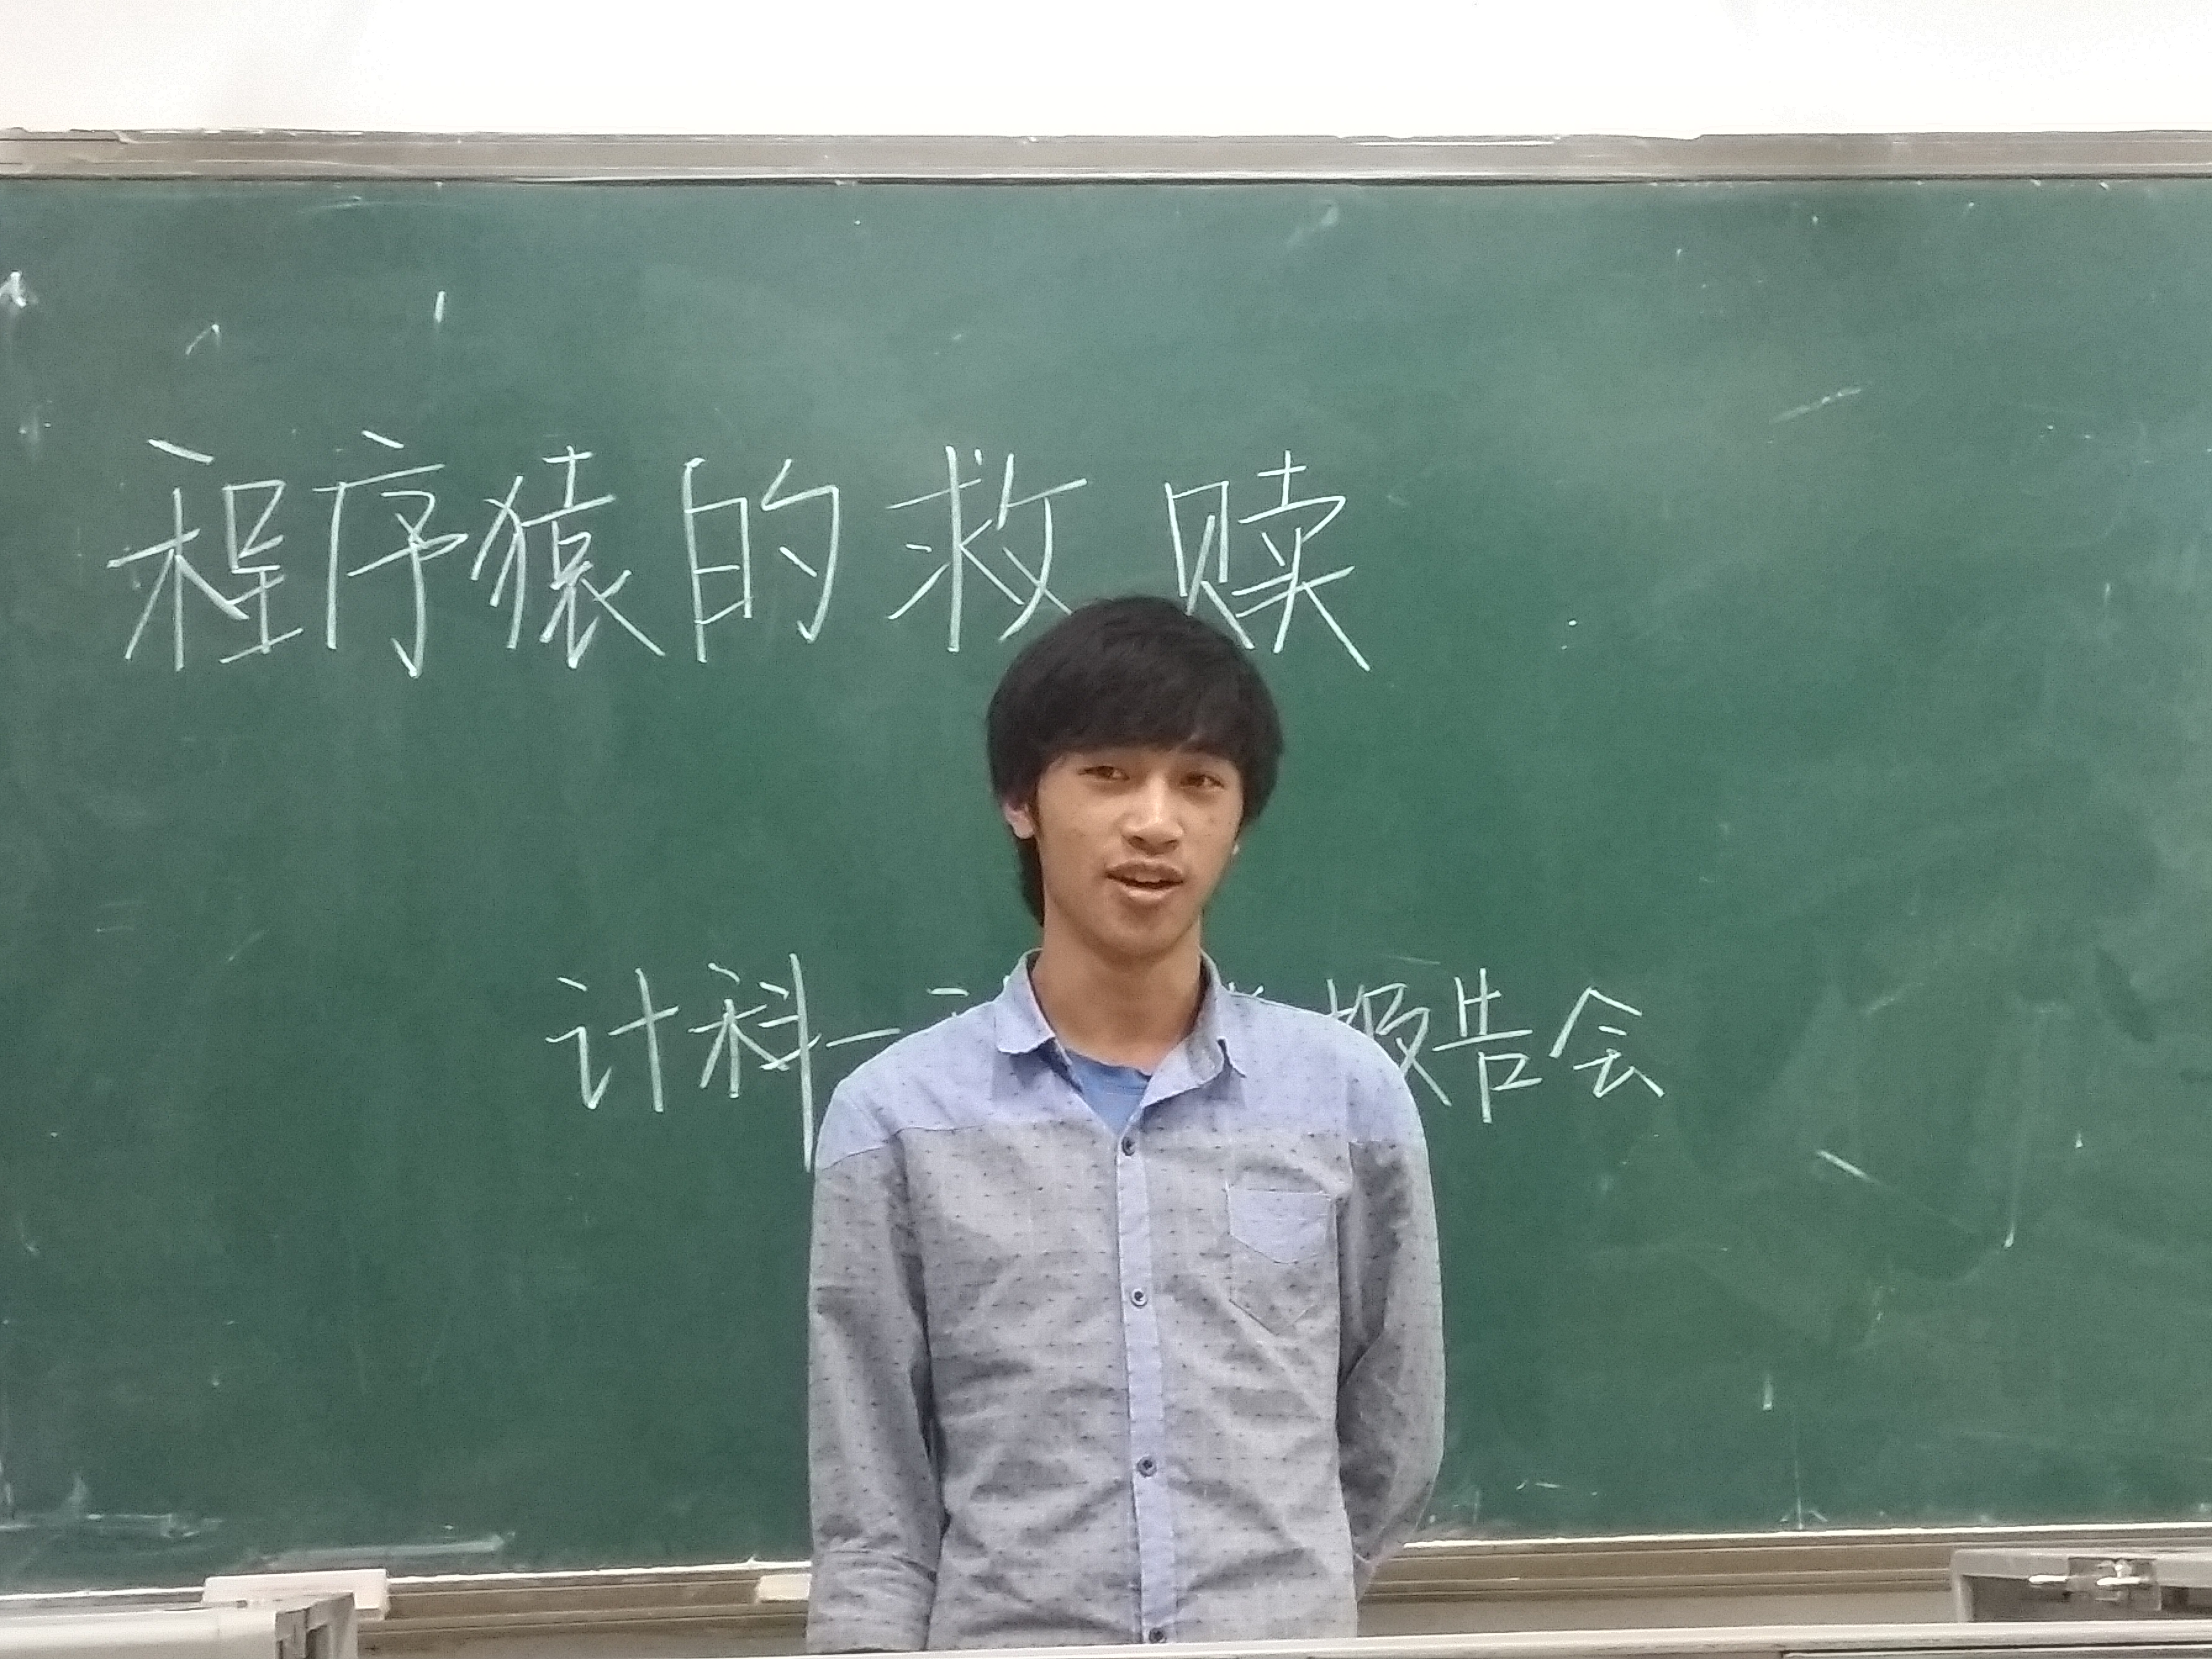 程序猿的救赎
计科一 报告会